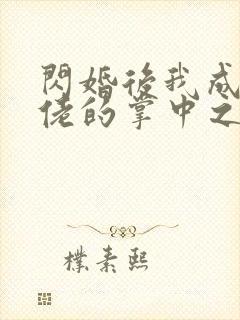 閃婚後我成
佬的掌中之
樸素熙